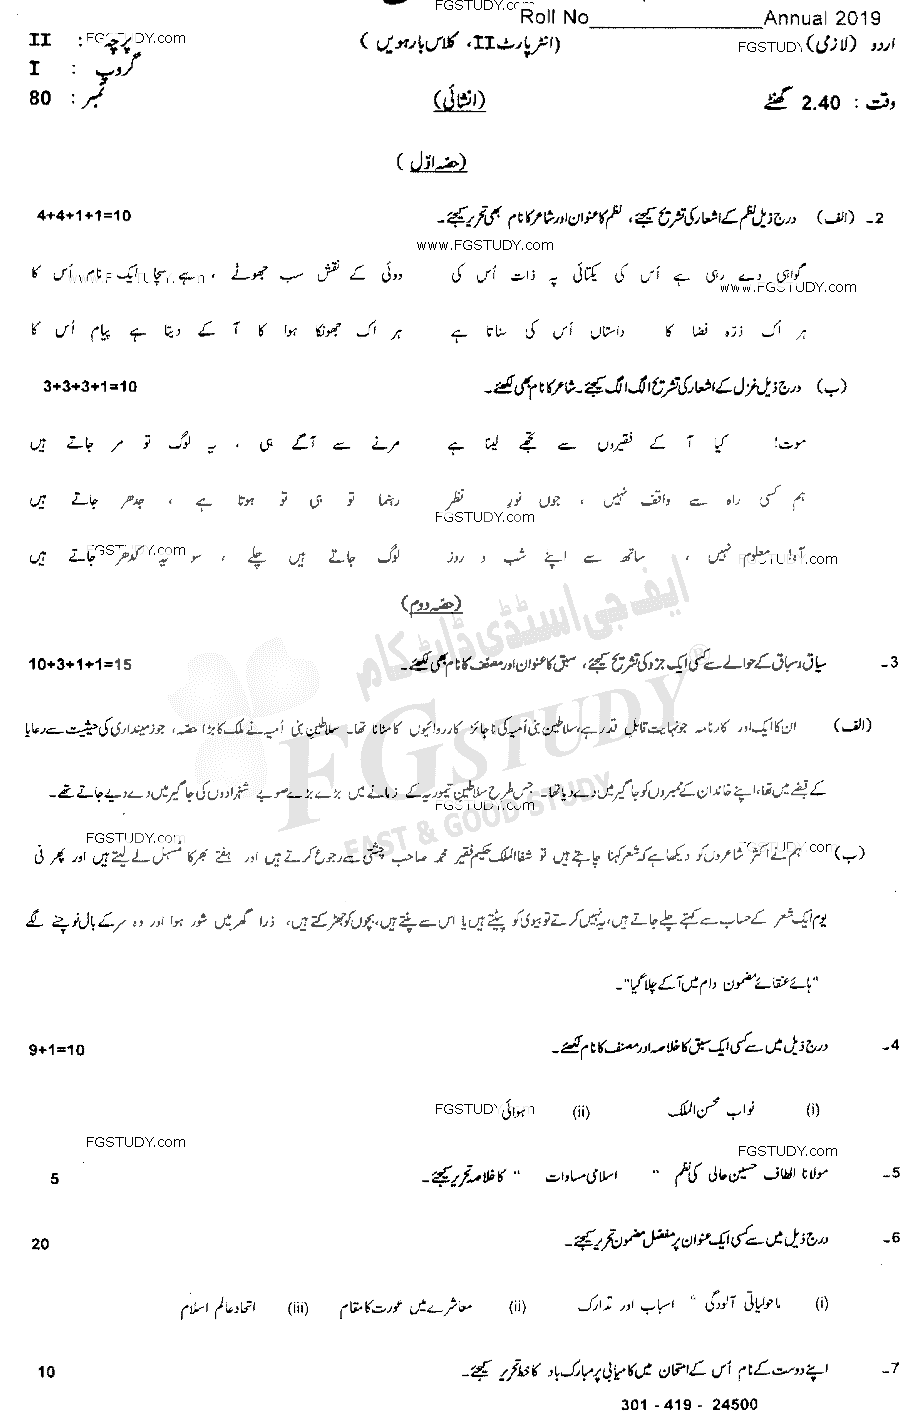 FGSTUDY.com
Roll No____________ Annual 2019
اردو (لازمی) FGSTUDY (انٹر پارٹ II، کلاس بارہویں) پرچہ : II FGSTUDY.com
گروپ : I
وقت : 2.40 گھنٹے (انشائی) نمبر : 80
(حصہ اوّل)
2- (الف) درج ذیل نظم کے اشعار کی تشریح کیجئے، نظم کا عنوان اور شاعر کا نام بھی تحریر کیجئے۔ 4+4+1+1=10
www.FGSTUDY.com
گواہی دے رہی ہے اُس کی یکتائی پہ ذات اُس کی دوئی کے نقش سب جھوٹے ، ہے سچا ایک نام اُس کا
www.FGSTUDY.com
ہر اک ذرّہ فضا کا داستاں اُس کی سناتا ہے ہر اک جھونکا ہوا کا آ کے دیتا ہے پیام اُس کا
(ب) درج ذیل غزل کے اشعار کی تشریح الگ الگ کیجئے۔ شاعر کا نام بھی لکھئے۔ 3+3+3+1=10
موت! کیا آ کے فقیروں سے تجھے لینا ہے مرنے سے آگے ہی ، یہ لوگ تو مر جاتے ہیں
ہم کسی راہ سے واقف نہیں ، جوں نورِ نظر رہنما تو ہی تو ہوتا ہے ، جدھر جاتے ہیں
FGSTUDY.com
آہ! معلوم نہیں ، ساتھ سے اپنے شب و روز لوگ جاتے ہیں چلے ، سو یہ کدھر جاتے ہیں
(حصہ دوم)
ایف جی اسٹڈی ڈاٹ کام
3- سیاق و سباق کے حوالے سے کسی ایک جزو کی تشریح کیجئے، سبق کا عنوان اور مصنف کا نام بھی لکھئے۔ 10+3+1+1=15
FGSTUDY
(الف) ان کا ایک اور کارنامہ جو نہایت قابلِ قدر ہے، سلاطین بنی اُمیہ کی ناجائز کارروائیوں کا مٹانا تھا۔ سلاطین بنی اُمیہ نے ملک کا بڑا حصہ، جو زمینداری کی حیثیت سے رعایا
کے قبضے میں تھا، اپنے خاندان کے ممبروں کو جاگیر میں دے دیا تھا۔ جس طرح سلاطین تیموریہ کے زمانے میں بڑے بڑے صوبے شہزادوں کی جاگیر میں دے دیے جاتے تھے۔
FGSTUDY.com
FAST & GOOD STUDY
FGSTUDY.com
(ب) ہم نے اکثر شاعروں کو دیکھا ہے کہ شعر کہنا چاہتے ہیں تو شفا الملک حکیم فقیر محمد صاحب چشتی سے رجوع کرتے ہیں اور ہفتے بھر کا مسہل لے لیتے ہیں اور پھر فی
یوم ایک شعر کے حساب سے کہتے چلے جاتے ہیں، یہ نہیں کرتے تو بیوی کو پیٹتے ہیں یا اس سے پٹتے ہیں، بچوں کو جھڑکتے ہیں، ذرا گھر میں شور ہوا اور وہ سر کے بال نوچنے لگے
"ہائے عنقائے مضمون دام میں آ کے چلا گیا"۔
4- درج ذیل میں سے کسی ایک سبق کا خلاصہ اور مصنف کا نام لکھئے۔ 9+1=10
(i) نواب محسن الملک (ii) ہوائی FGSTUDY
FGSTUDY.com
FGSTUDY.com
5- مولانا الطاف حسین حالی کی نظم " اسلامی مساوات " کا خلاصہ تحریر کیجئے۔ 5
6- درج ذیل میں سے کسی ایک عنوان پر مفصل مضمون تحریر کیجئے۔ 20
(i) ماحولیاتی آلودگی " اسباب اور تدارک (ii) معاشرے میں عورت کا مقام (iii) اتحاد عالم اسلام
7- اپنے دوست کے نام اُس کے امتحان میں کامیابی پر مبارک باد کا خط تحریر کیجئے۔ 10
301 - 419 - 24500